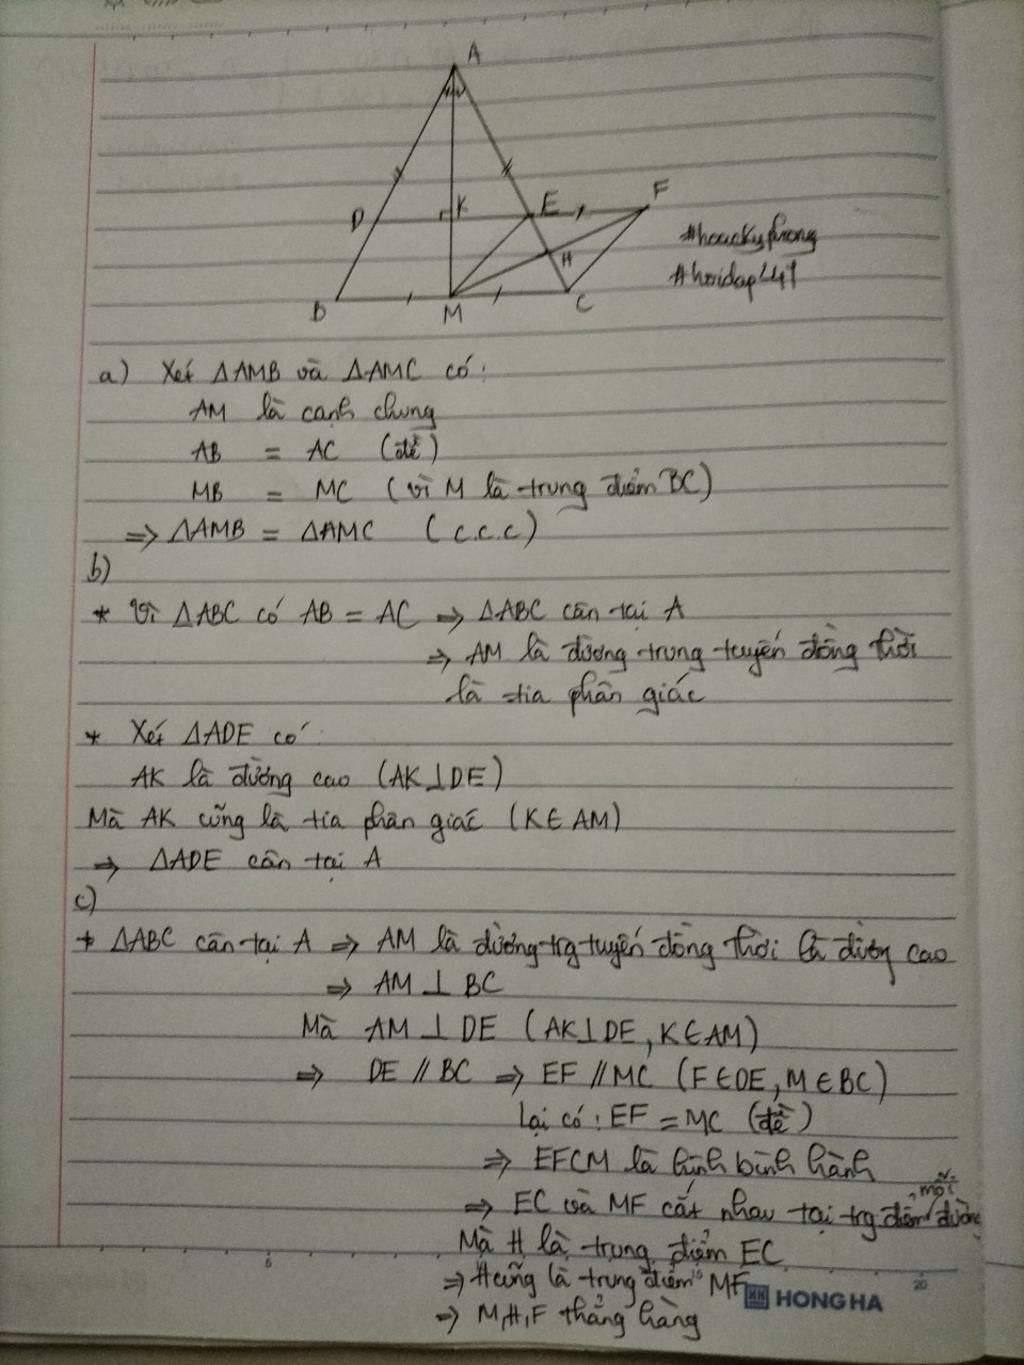 A
D K E F
H
B M C
#hoackyphuong
#hoidap247
a) Xét ΔAMB và ΔAMC có:
AM là cạnh chung
AB = AC (đề)
MB = MC (vì M là trung điểm BC)
=> ΔAMB = ΔAMC (c.c.c)
b)
* Vì ΔABC có AB = AC => ΔABC cân tại A
=> AM là đường trung tuyến đồng thời
là tia phân giác
* Xét ΔADE có
AK là đường cao (AK⊥DE)
Mà AK cũng là tia phân giác (K∈AM)
=> ΔADE cân tại A
c)
* ΔABC cân tại A => AM là đường trg tuyến đồng thời là đường cao
=> AM ⊥ BC
Mà AM ⊥ DE (AK⊥DE, K∈AM)
=> DE // BC => EF // MC (F∈DE, M∈BC)
Lại có: EF = MC (đề)
=> EFCM là hình bình hành
=> EC và MF cắt nhau tại trg điểm mỗi đường
Mà H là trung điểm EC
=> H cũng là trung điểm MF
=> M,H,F thẳng hàng
6
15
20
HONG HA